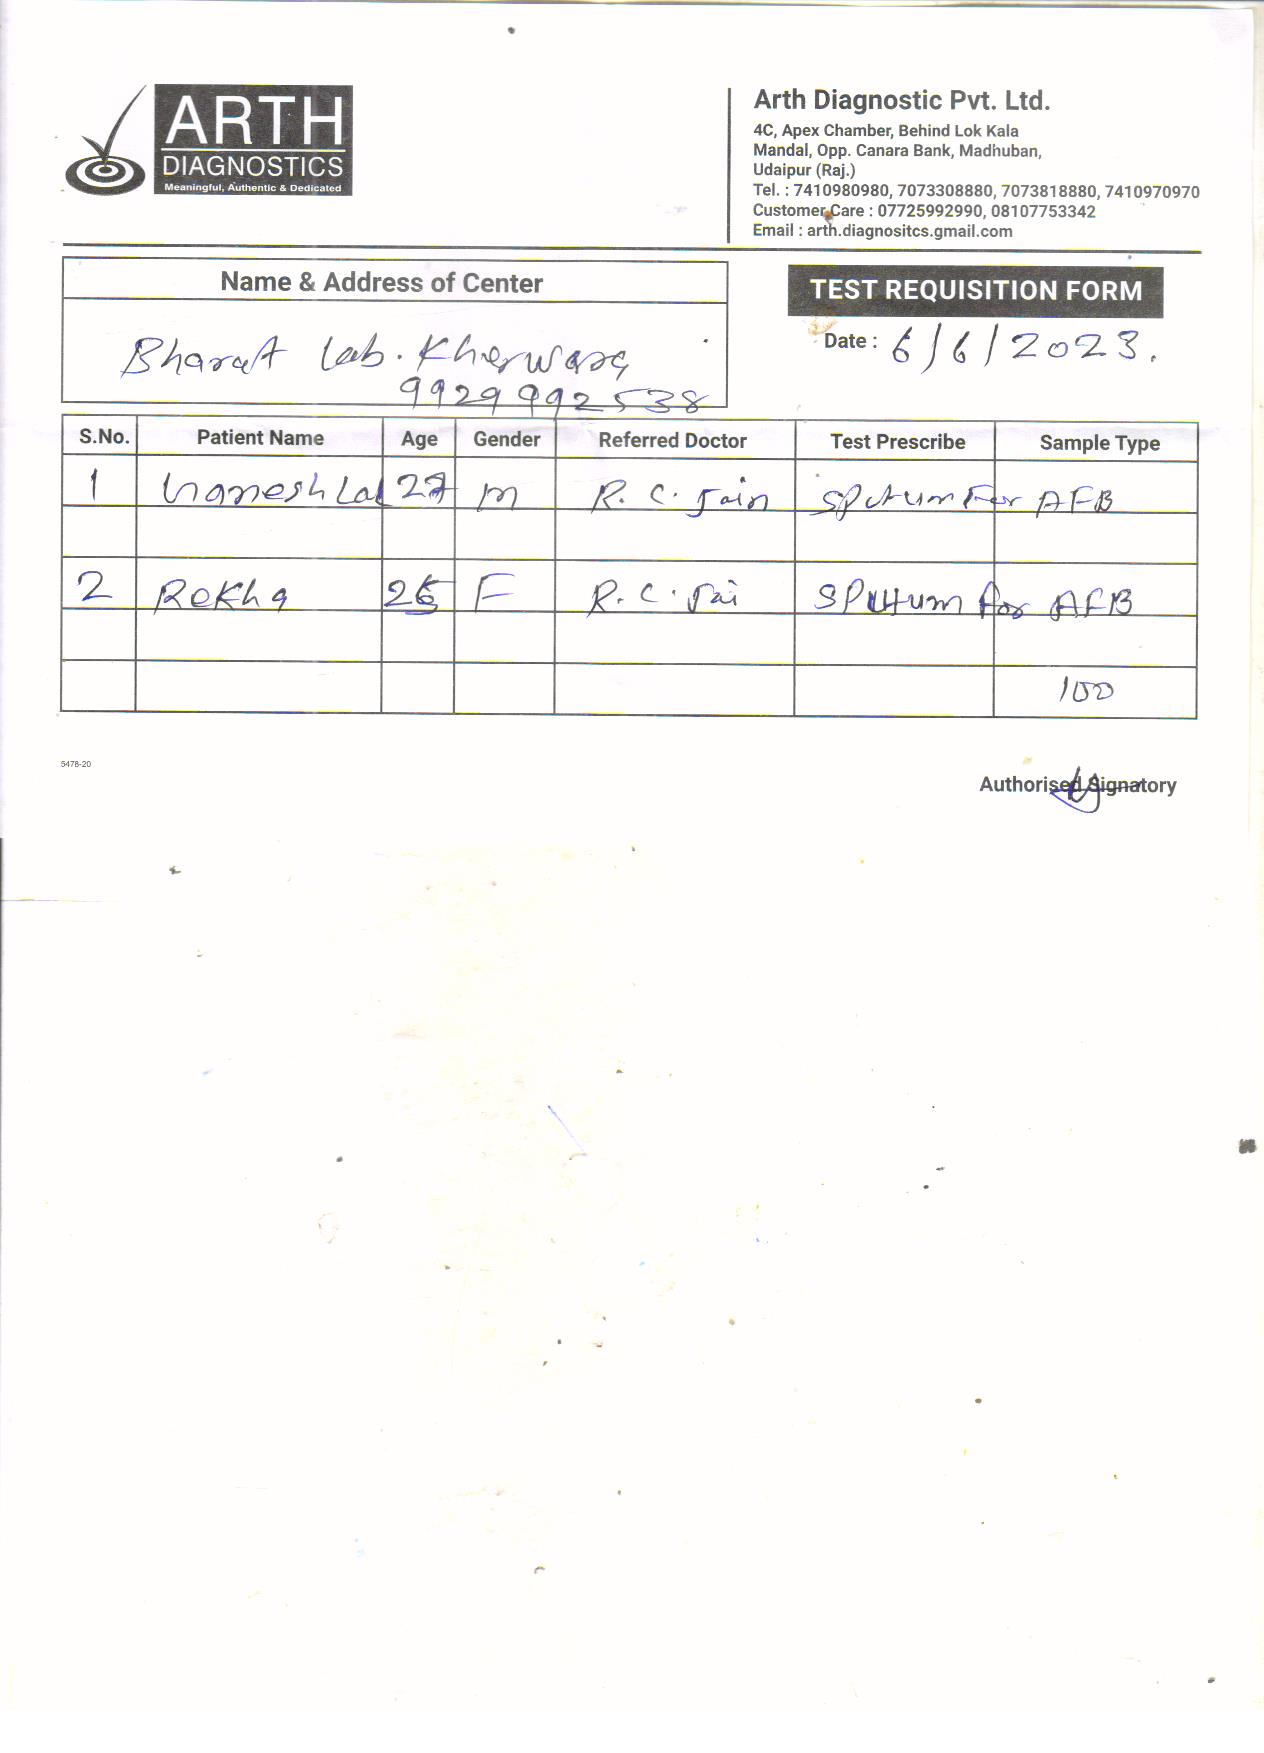 ARTH
DIAGNOSTICS
Meaningful, Authentic & Dedicated
Arth Diagnostic Pvt. Ltd.
4C, Apex Chamber, Behind Lok Kala
Mandal, Opp. Canara Bank, Madhuban,
Udaipur (Raj.)
Tel. : 7410980980, 7073308880, 7073818880, 7410970970
Customer Care : 07725992990, 08107753342
Email : arth.diagnositcs.gmail.com
Name & Address of Center
TEST REQUISITION FORM
Bharat Lab. Kherwara
9929992538
Date : 6/6/2023.
S.No. Patient Name Age Gender Referred Doctor Test Prescribe Sample Type
1 Lal 27 m R. C. Jain Sputum For AFB
2 Rekha 26 F R. C. Jai Sputum for AFB
100
5478-20
Authorised Signatory